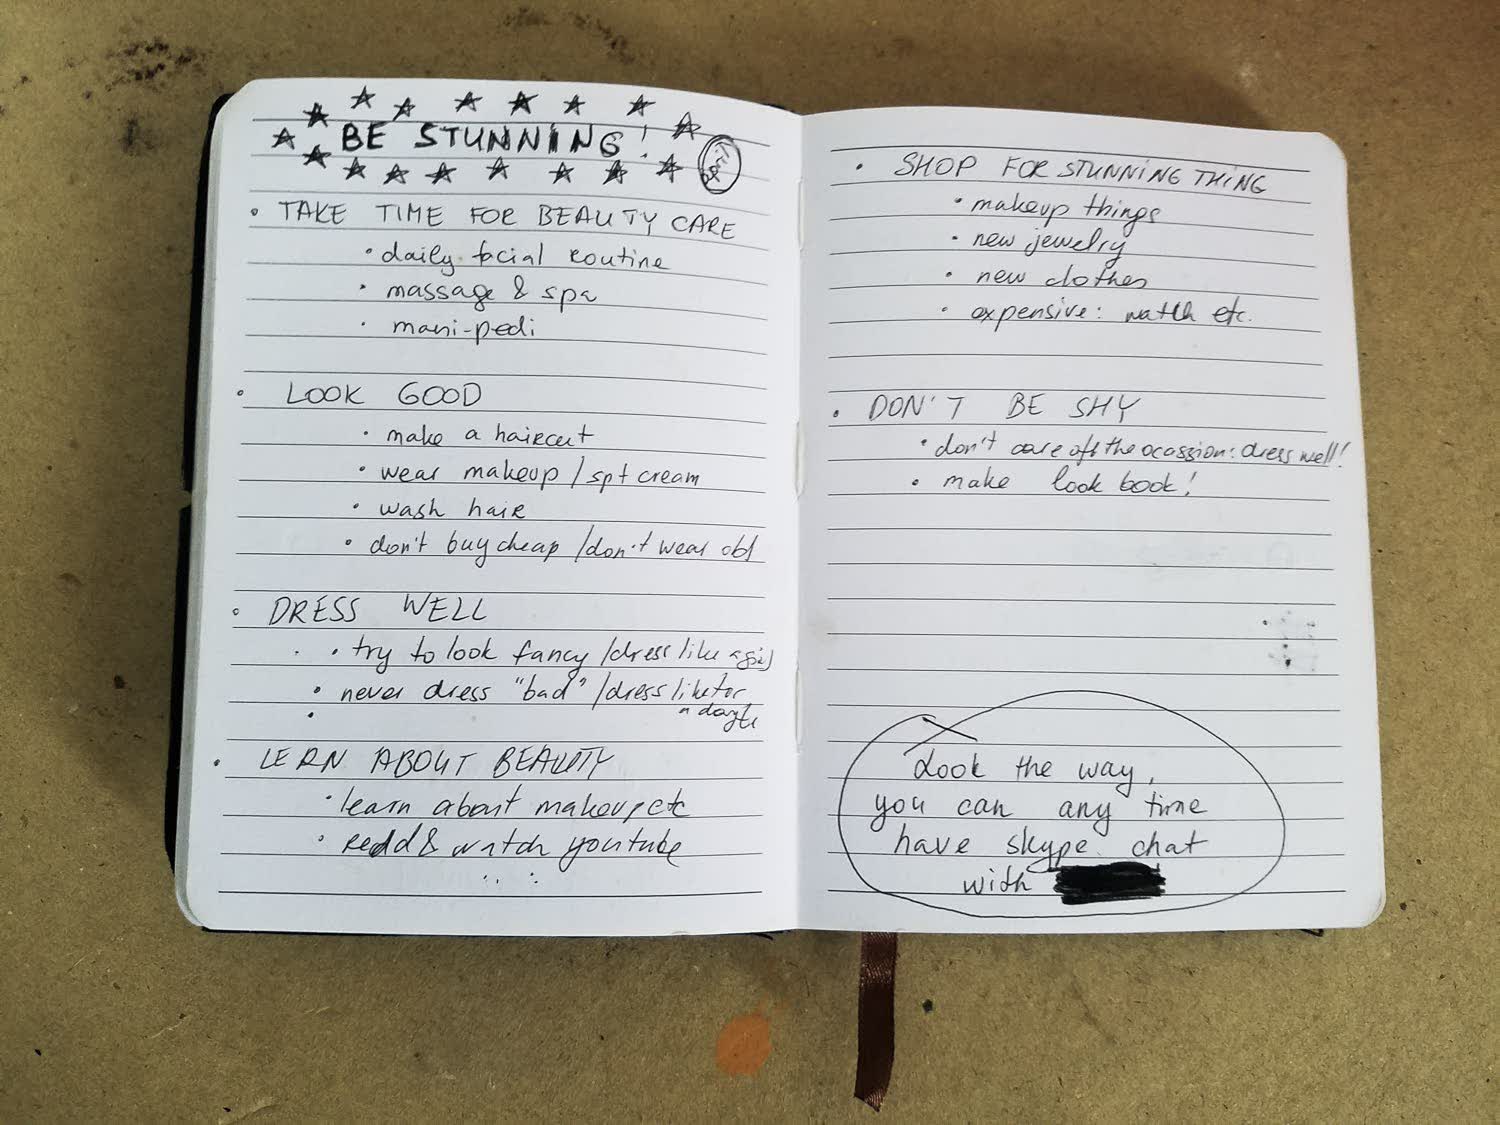 BE STUNNING!
• TAKE TIME FOR BEAUTY CARE
• daily facial routine
• massage & spa
• mani-pedi
• LOOK GOOD
• make a haircut
• wear makeup / spf cream
• wash hair
• don't buy cheap / don't wear old
• DRESS WELL
• try to look fancy / dress like a girl
• never dress "bad" / dress like for
a day
• LERN ABOUT BEAUTY
• learn about makeup etc
• read & watch youtube
• SHOP FOR STUNNING THING
• makeup things
• new jewelry
• new clothes
• expensive: watch etc.
• DON'T BE SHY
• don't care off the ocassion: dress well!
• make look book!
Look the way,
you can any time
have skype chat
with